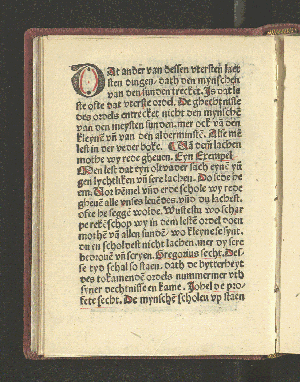 DAt ander van dessen vtersten laes
sten dingen, dath den mynschen
van den sunden trecket. Js dat le
ste ofte dat vterste ordel. De ghedechtnisse
des ordels entrecket nicht den mynschē
van den meysten sunden, mer ock vā den
kleynē vn̄ van den aldermynstē. Alse mē
lest in der veder boke. Vā dem lachen
mothe wy rede gheuen. Eyn Exempel
MEn lest dat eyn oltvader sach eynē yū
gen lychtliken vn̄ sere lachen. Do sede he
em. Vor hēmel vn̄ erde schole wy rede
gheuē alle vnses leuēdes. vn̄ du lachest.
ofte he seggē wolde. Wustestu wo schar
pe rekēschop wy in dem lestē ordel doen
mothē vā allen sundē. wo kleyne se synt.
du en scholdest nicht lachen, mer dy sere
bedrouē vn̄ scryen. Gregorius secht. Des
se tyd schal so staen, dath de bytterheyt
des tokamendē ordels nummermer vth
syner dechtnisse en kame. Johel de pro
fete secht. De mynschē scholen vp staen